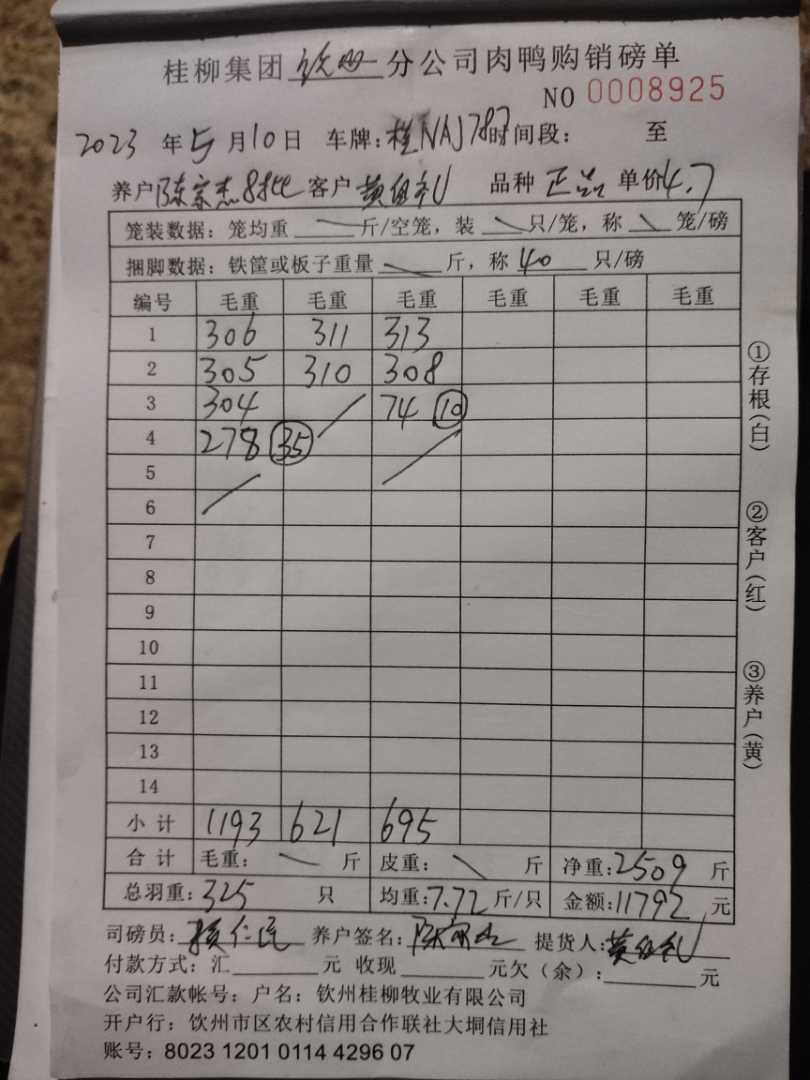 桂柳集团 钦州 分公司肉鸭购销磅单
NO 0008925
2023 年 5 月 10 日 车牌: 桂NAJ787 时间段: 至
养户 陈家杰8批 客户 黄 礼 品种 正品 单价 4.7
笼装数据: 笼均重 斤/空笼, 装 只/笼, 称 笼/磅
捆脚数据: 铁筐或板子重量 斤, 称 40 只/磅
编号 毛重 毛重 毛重 毛重 毛重 毛重
1 306 311 313
2 305 310 308
3 304 74 10
4 278 35
5
6
7
8
9
10
11
12
13
14
小计 1193 621 695
合计 毛重: 斤 皮重: 斤 净重: 2509 斤
总羽重: 325 只 均重: 7.72 斤/只 金额: 11792 元
司磅员: 养户签名: 陈 提货人: 黄 礼
付款方式: 汇 元 收现 元欠(余): 元
公司汇款帐号: 户名: 钦州桂柳牧业有限公司
开户行: 钦州市区农村信用合作联社大垌信用社
账号: 8023 1201 0114 4296 07
①存根(白)
②客户(红)
③养户(黄)